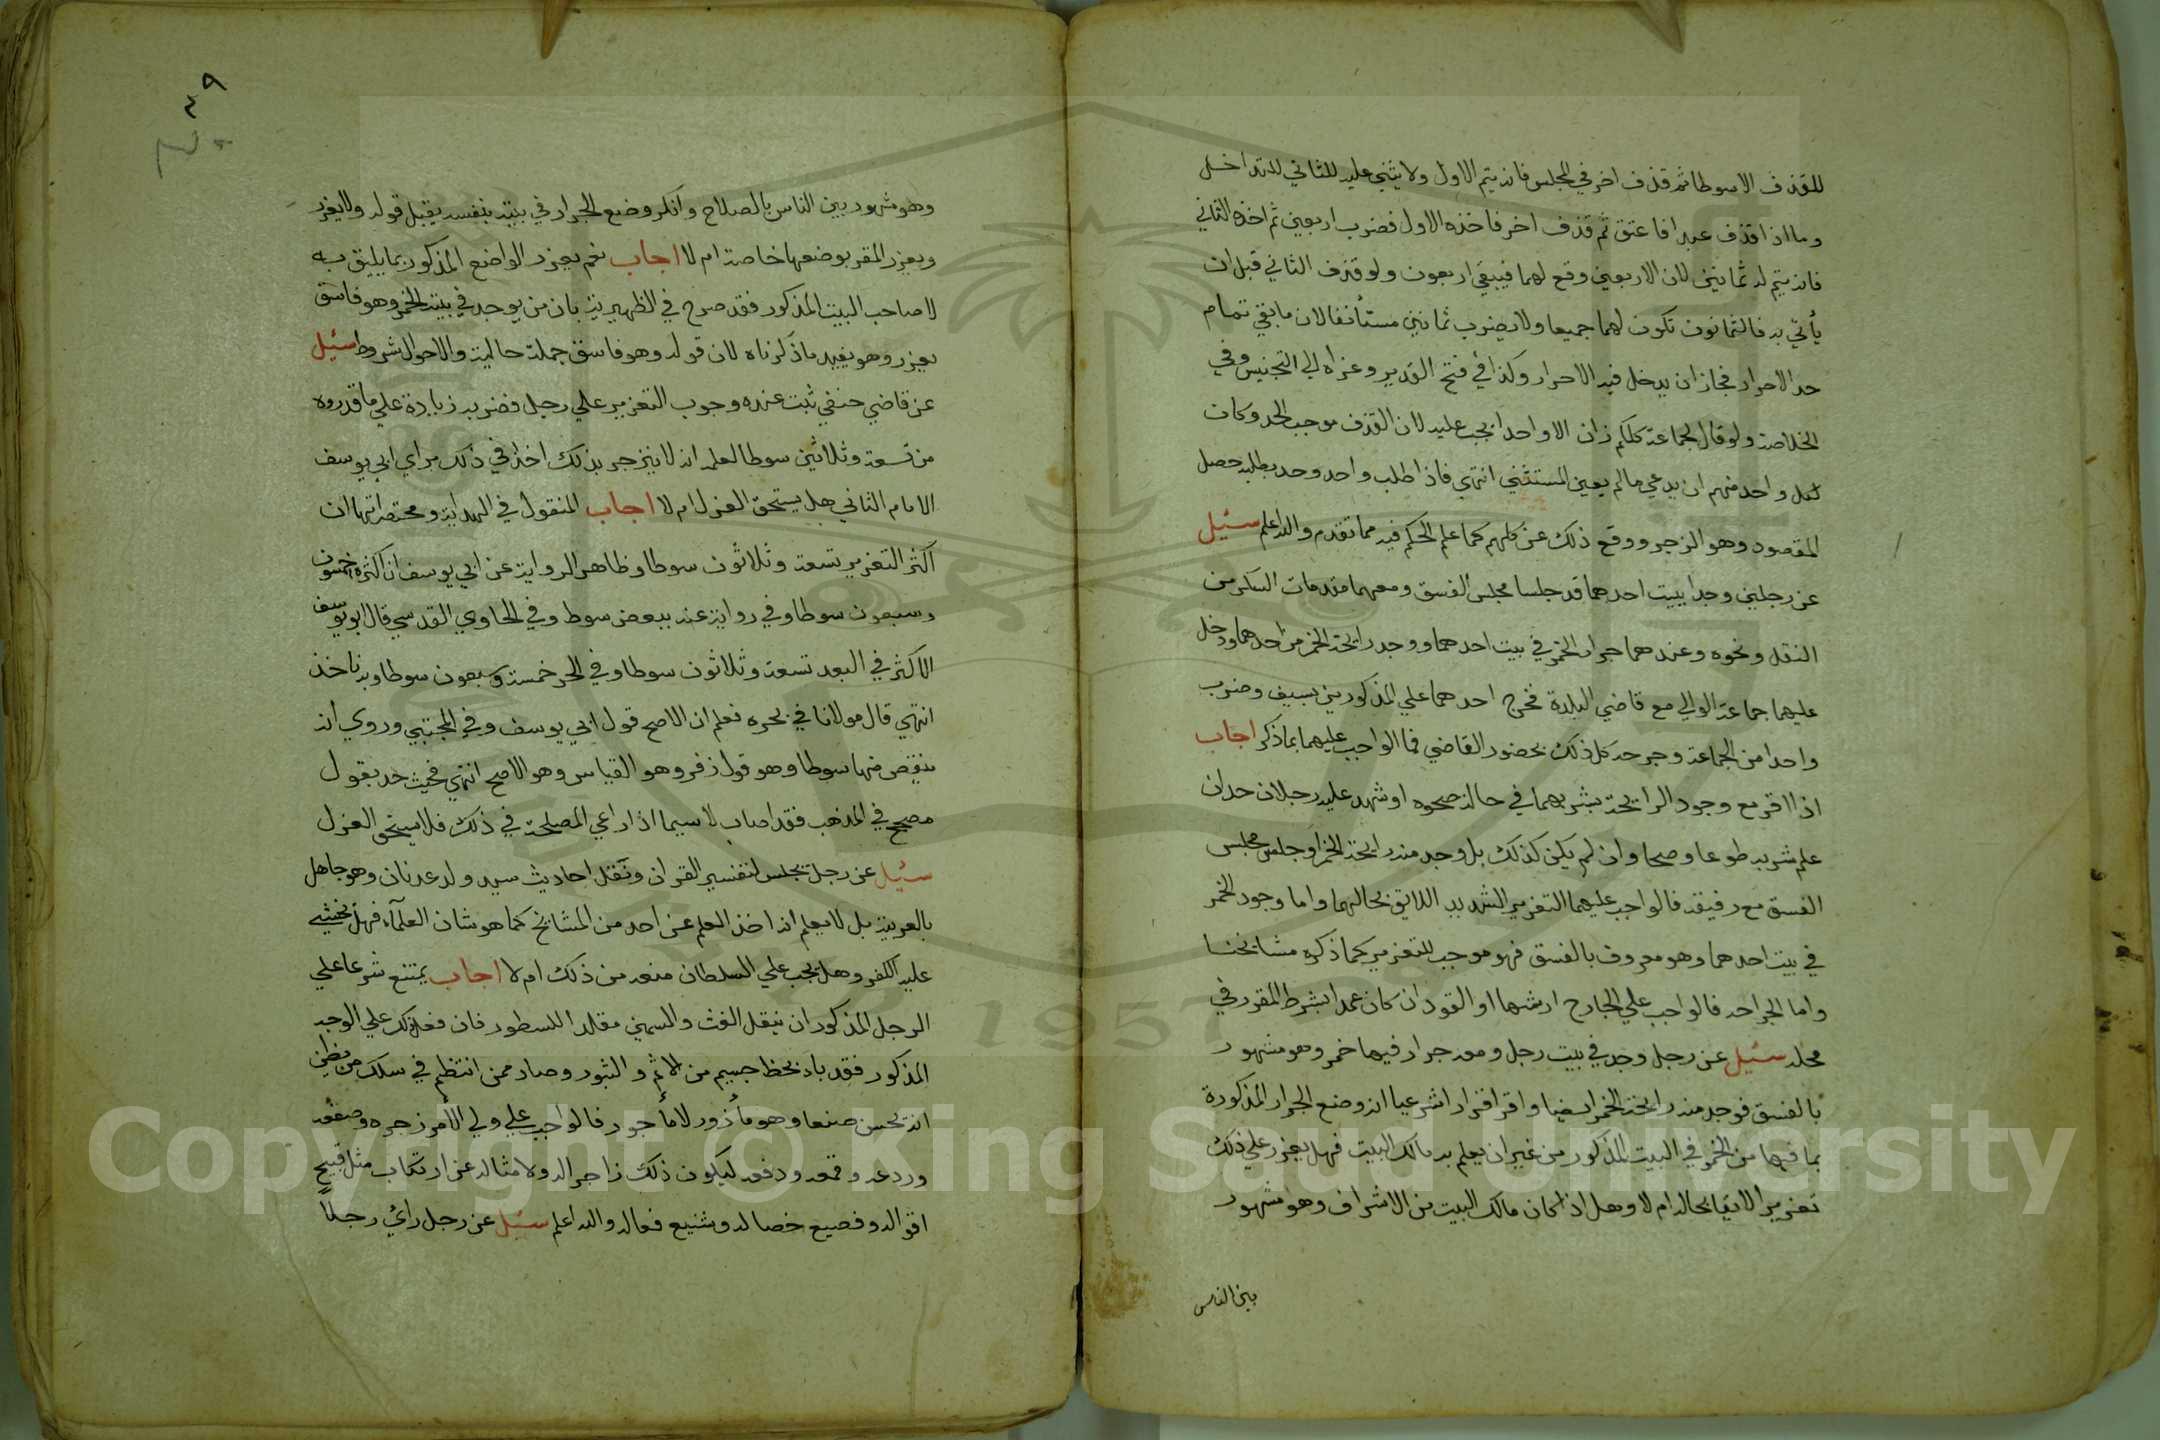 للقذف الا سوطا ثم قذف اخر في المجلس فانه يتم الاول ولا يثني عليه للثاني للتداخل
وما اذا قذف عبد افاعتق ثم قذف اخر فاخذه الاول فضرب اربعين ثم اخذه الثاني
فانه يتم له ثمانين لان الاربعين وقع لهما فيبقي اربعون ولو قذف الثاني قبل ان
يأتي به فالثمانون تكون لهما جميعا ولا يضرب ثمانين مستأنفا لان ما بقي تمام
حد الاحرار فجاز ان يدخل فيه الاحرار وكذا في فتح القدير وعزاه الي التجنيس وفي
الخلاصة ولو قال لجماعة كلكم زان الا واحد ايجب عليه لان القذف موجب الحد وكان
لكل واحد منهم ان يدعي ما لم يعين المستثني انتهي فاذا طلب واحد وحد بطلبه حصل
المقصود وهو الزجر ووقع ذلك عن كلهم كما علم الحكم فيه مما تقدم والله اعلم سئيل
عن رجلين وجدا ببيت احدهما قد جلسا مجلس الفسق ومعهما مقدمات السكر من
النقل ونحوه وعندهما جرار الخمر في بيت احدهما ووجد رايحة الخمر من احدهما ودخل
عليهما جماعة الوالي مع قاضي البلدة فخرج احدهما علي المذكورين بسيف وضرب
واحدا من الجماعة وجرحه كل ذلك بحضور القاضي فما الواجب عليهما بما ذكر اجاب
اذا اقر مع وجود الرايحة بشربهما في حالة صحوه او شهد عليه رجلان حد ان
علم شربه طوعا وصحا وان لم يكن كذلك بل وجد منه رايحة الخمر او جلس مجلس
الفسق مع رفيقه فالواجب عليهما التعزير الشديد اللايق بحالهما واما وجود الخمر
في بيت احدهما وهو معروف بالفسق فهو موجب للتعزير كما ذكره مشايخنا
واما الجراحه فالواجب علي الجارح ارشها او القود ان كان عمدا بشرط المقرر في
محله سئيل عن رجل وجد في بيت رجل ومعه جرار فيها خمر وهو مشهور
بالفسق فوجد منه رايحة الخمر ايضا واقر اقرارا شرعيا انه وضع الجرار المذكورة
بما فيها من الخمر في البيت المذكور من غير ان يعلم به مالك البيت فهل يعزر علي ذلك
تعزيرا لايقا بحاله ام لا وهل اذا كان مالك البيت من الاشراف وهو مشهور
بين الناس
٤٩
وهو مشهور بين الناس بالصلاح وانكر وضع الجرار في بيته بنفسه يقبل قوله ولا يعزر
ويعزر المقر بوضعها خاصة ام لا اجاب نعم يعزر الواضع المذكور بما يليق به
لا صاحب البيت المذكور فقد صرح في الظهيرية بان من يوجد في بيته الخمر وهو فاسق
يعزر وهو يفيد ما ذكرناه لان قوله وهو فاسق جملة حالية والاحوال شروط سئيل
عن قاضي حنفي ثبت عنده وجوب التعزير علي رجل فضربه زيادة علي ما قدروه
من تسعة وثلاثين سوطا لعلمه انه لا ينزجر بذلك اخذا في ذلك براي ابي يوسف
الامام الثاني هل يستحق العزل ام لا اجاب المنقول في الهداية ومختصراتها ان
اكثر التعزير تسعة وثلاثون سوطا وظاهر الرواية عن ابي يوسف ان اكثره خمسة
وسبعون سوطا وفي رواية عنه ببعض سوط وفي الحاوي القدسي قال ابو يوسف
الاكثر في العبد تسعة وثلاثون سوطا وفي الحر خمسة وسبعون سوطا وبه ناخذ
انتهي قال مولانا في بحره فعلم ان الاصح قول ابي يوسف وفي المجتبي وروي انه
ينقص منها سوطا وهو قول زفر وهو القياس وهو الاصح انتهي فحيث حد بقول
مصحح في المذهب فقد اصاب لا سيما اذا راعي المصلحة في ذلك فلا يستحق العزل
سئيل عن رجل يجلس لتفسير القران ونقل احاديث سيد ولد عدنان وهو جاهل
بالعربية بل لا يعلم انه اخذ العلم عن احد من المشايخ كما هو شان العلمآء فهل يخشي
عليه الكفر وهل يجب علي السلطان منعه من ذلك ام لا اجاب يمتنع شرعا علي
الرجل المذكور ان ينقل الغث والسمين مقلدا للسطور فان فعل ذلك علي الوجه
المذكور فقد باء بحظ جسيم من الاثم والثبور وصار ممن انتظم في سلك من يظن
انه يحسن صنعا وهو مأزور لا مأجور فالواجب علي ولي الأمر زجره وصفعه
وردعه وقمعه ودفعه ليكون ذلك زاجرا له ولامثاله عن ارتكاب مثل قبيح
اقواله وفضيع خصاله وشنيع فعاله والله اعلم سئيل عن رجل رائ رجلاً
Copyright © King Saud University
1957